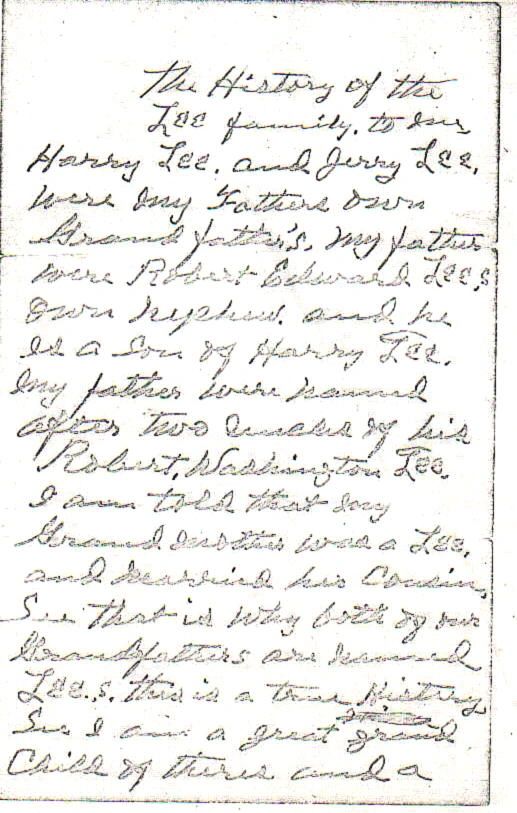 The History of the
Lee family, to me
Harry Lee. and Jerry Lee.
were my Fathers own
Grand father's. My father
were Robert Edward Lee,s
own nephew. and he
is a Son of Harry Lee.
my father were named
after two uncles of his
Robert, Washington Lee.
I am told that my
Grand mother was a Lee,
and married his Cousin,
See that is why both of our
Grandfathers are named
Lee.,s. this is a true History
See I am a great grand
Child of theres and a